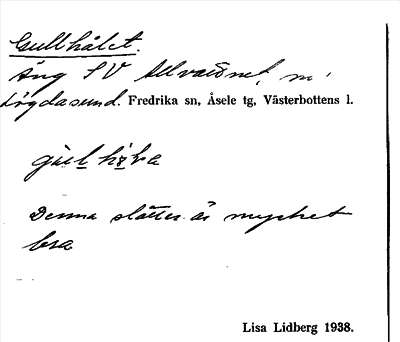 Gullhålet.
Äng SV Allvattnet, m.
Lögdasund. Fredrika sn, Åsele tg, Västerbottens l.
Denna slåtter är mycket
bra
Lisa Lidberg 1938.